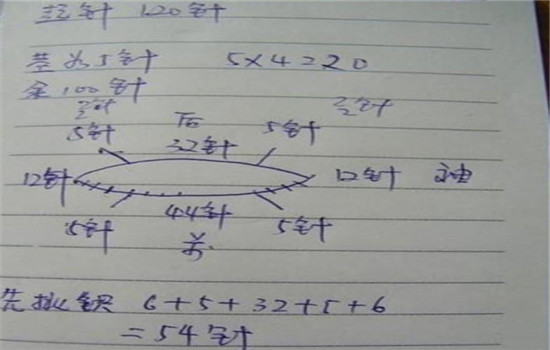 起针 120针
茎为5针 5×4=20
余100针
5针 后 5针
32针
12针 12针 袖
44针
5针 5针
先挑织 6+5+32+5+6
=54针